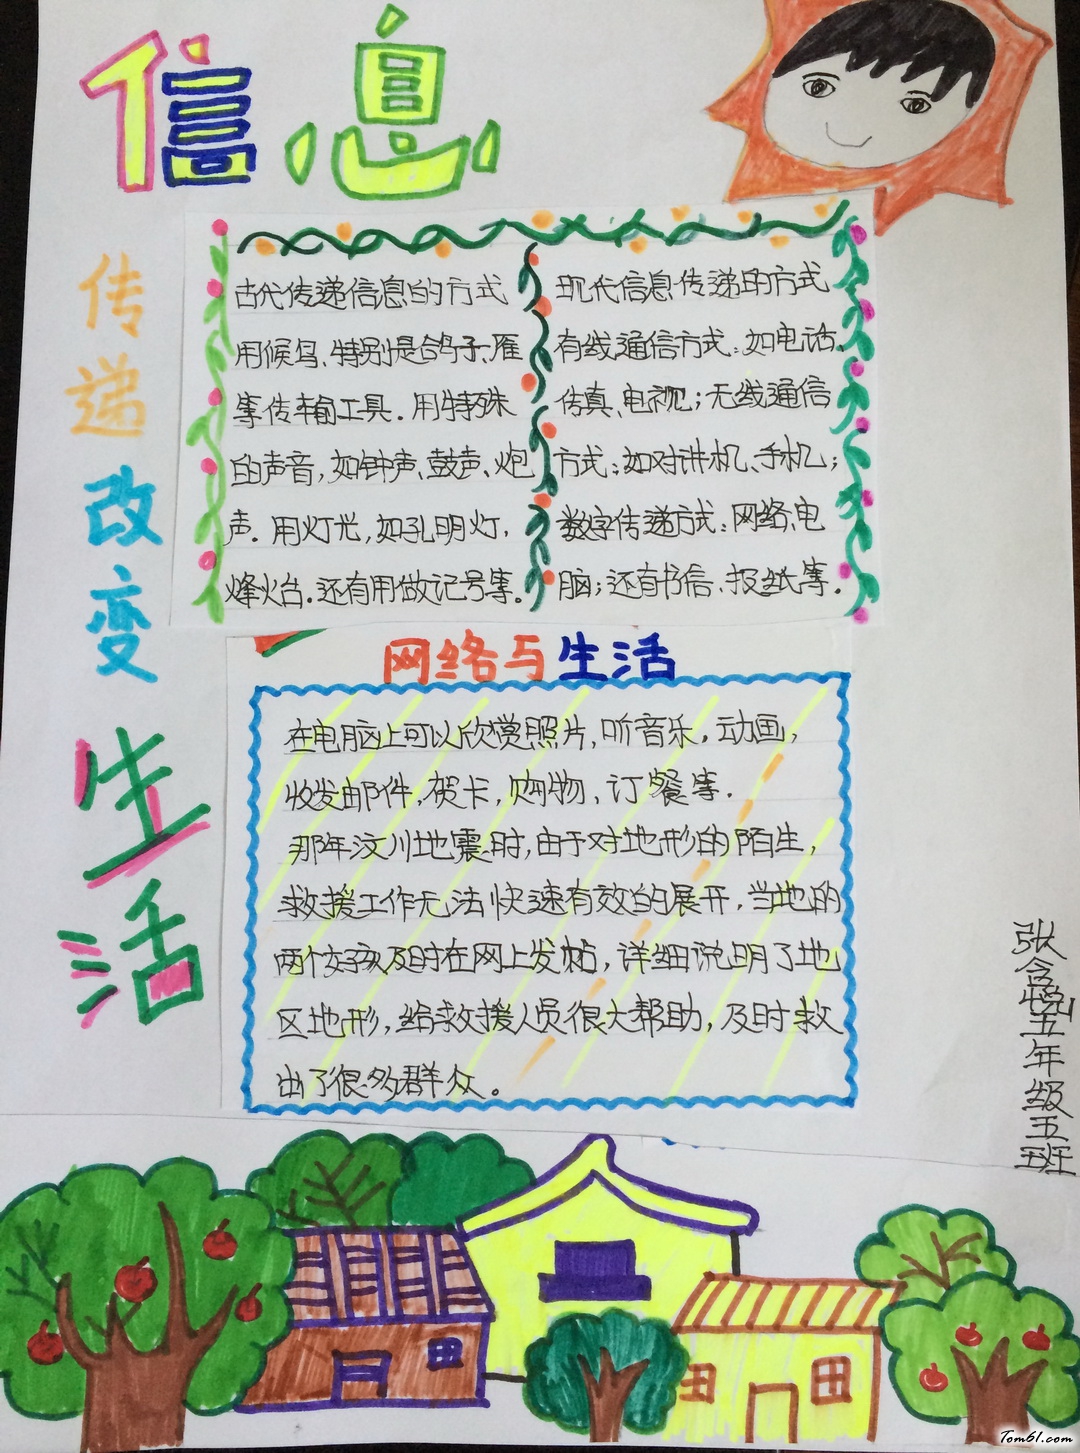 信息
传递改变生活
古代传递信息的方式
用候鸟、特别是鸽子、雁
等传输工具.用特殊
的声音,如钟声、鼓声、炮
声.用灯光,如孔明灯,
烽火台.还有用做记号等.
现代信息传递的方式
有线通信方式:如电话、
传真、电视;无线通信
方式:如对讲机、手机;
数字传递方式:网络、电
脑;还有书信、报纸等.
网络与生活
在电脑上可以欣赏照片,听音乐,动画,
收发邮件,贺卡,购物、订餐等.
那年汶川地震时,由于对地形的陌生,
救援工作无法快速有效的展开,当地的
两个女孩及时在网上发帖,详细说明了地
区地形,给救援人员很大帮助,及时救
出了很多群众。
张含悦五年级五班
Tom61.com